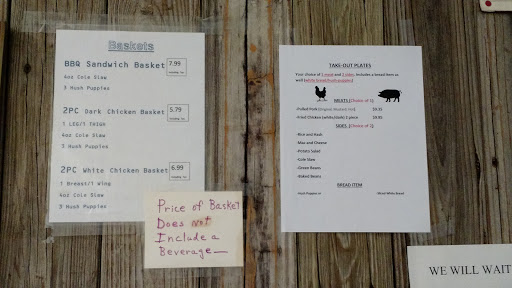 Baskets
BBQ Sandwich Basket 7.99
4oz Cole Slaw
3 Hush Puppies
2PC Dark Chicken Basket 5.79
1 LEG/1 THIGH
4oz Cole Slaw
3 Hush Puppies
2PC White Chicken Basket 6.99
1 Breast/1 Wing
4oz Cole Slaw
3 Hush Puppies
Price of Basket
Does not
Include a
Beverage—
TAKE-OUT PLATES
Your choice of 1 meat and 2 sides. Includes a bread item as
well (white bread/hushpuppies)
MEATS (Choice of 1)
-Pulled Pork $9.95
-Fried Chicken (white/dark) 2 piece $9.95
SIDES (Choice of 2)
-Rice and Hash
-Mac and Cheese
-Potato Salad
-Cole Slaw
-Green Beans
-Baked Beans
BREAD ITEM
-Hush Puppies or -Sliced White Bread
WE WILL WAIT